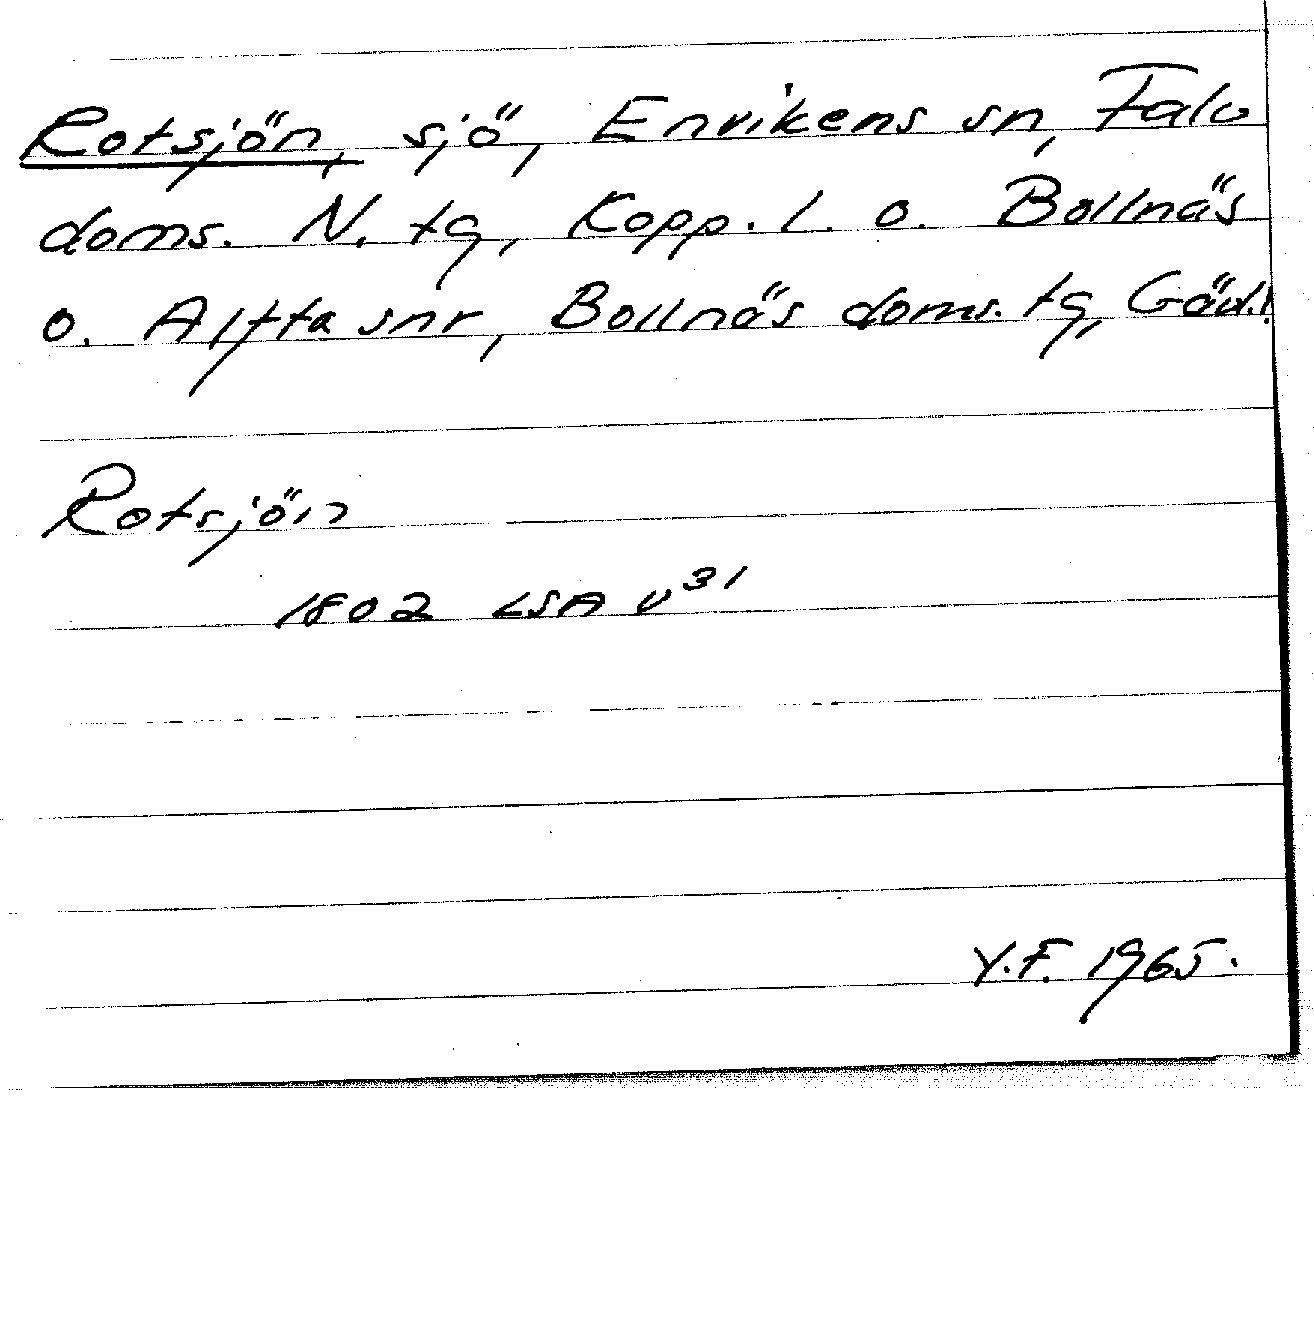 Rotsjön, sjö, Envikens sn, Falu
doms. N. tg, Kopp. l. o. Bollnäs
o. Alfta snr, Bollnäs doms. tg, Gävl.l.
Rotsjön
1802 LSA v³¹
Y.F. 1965.